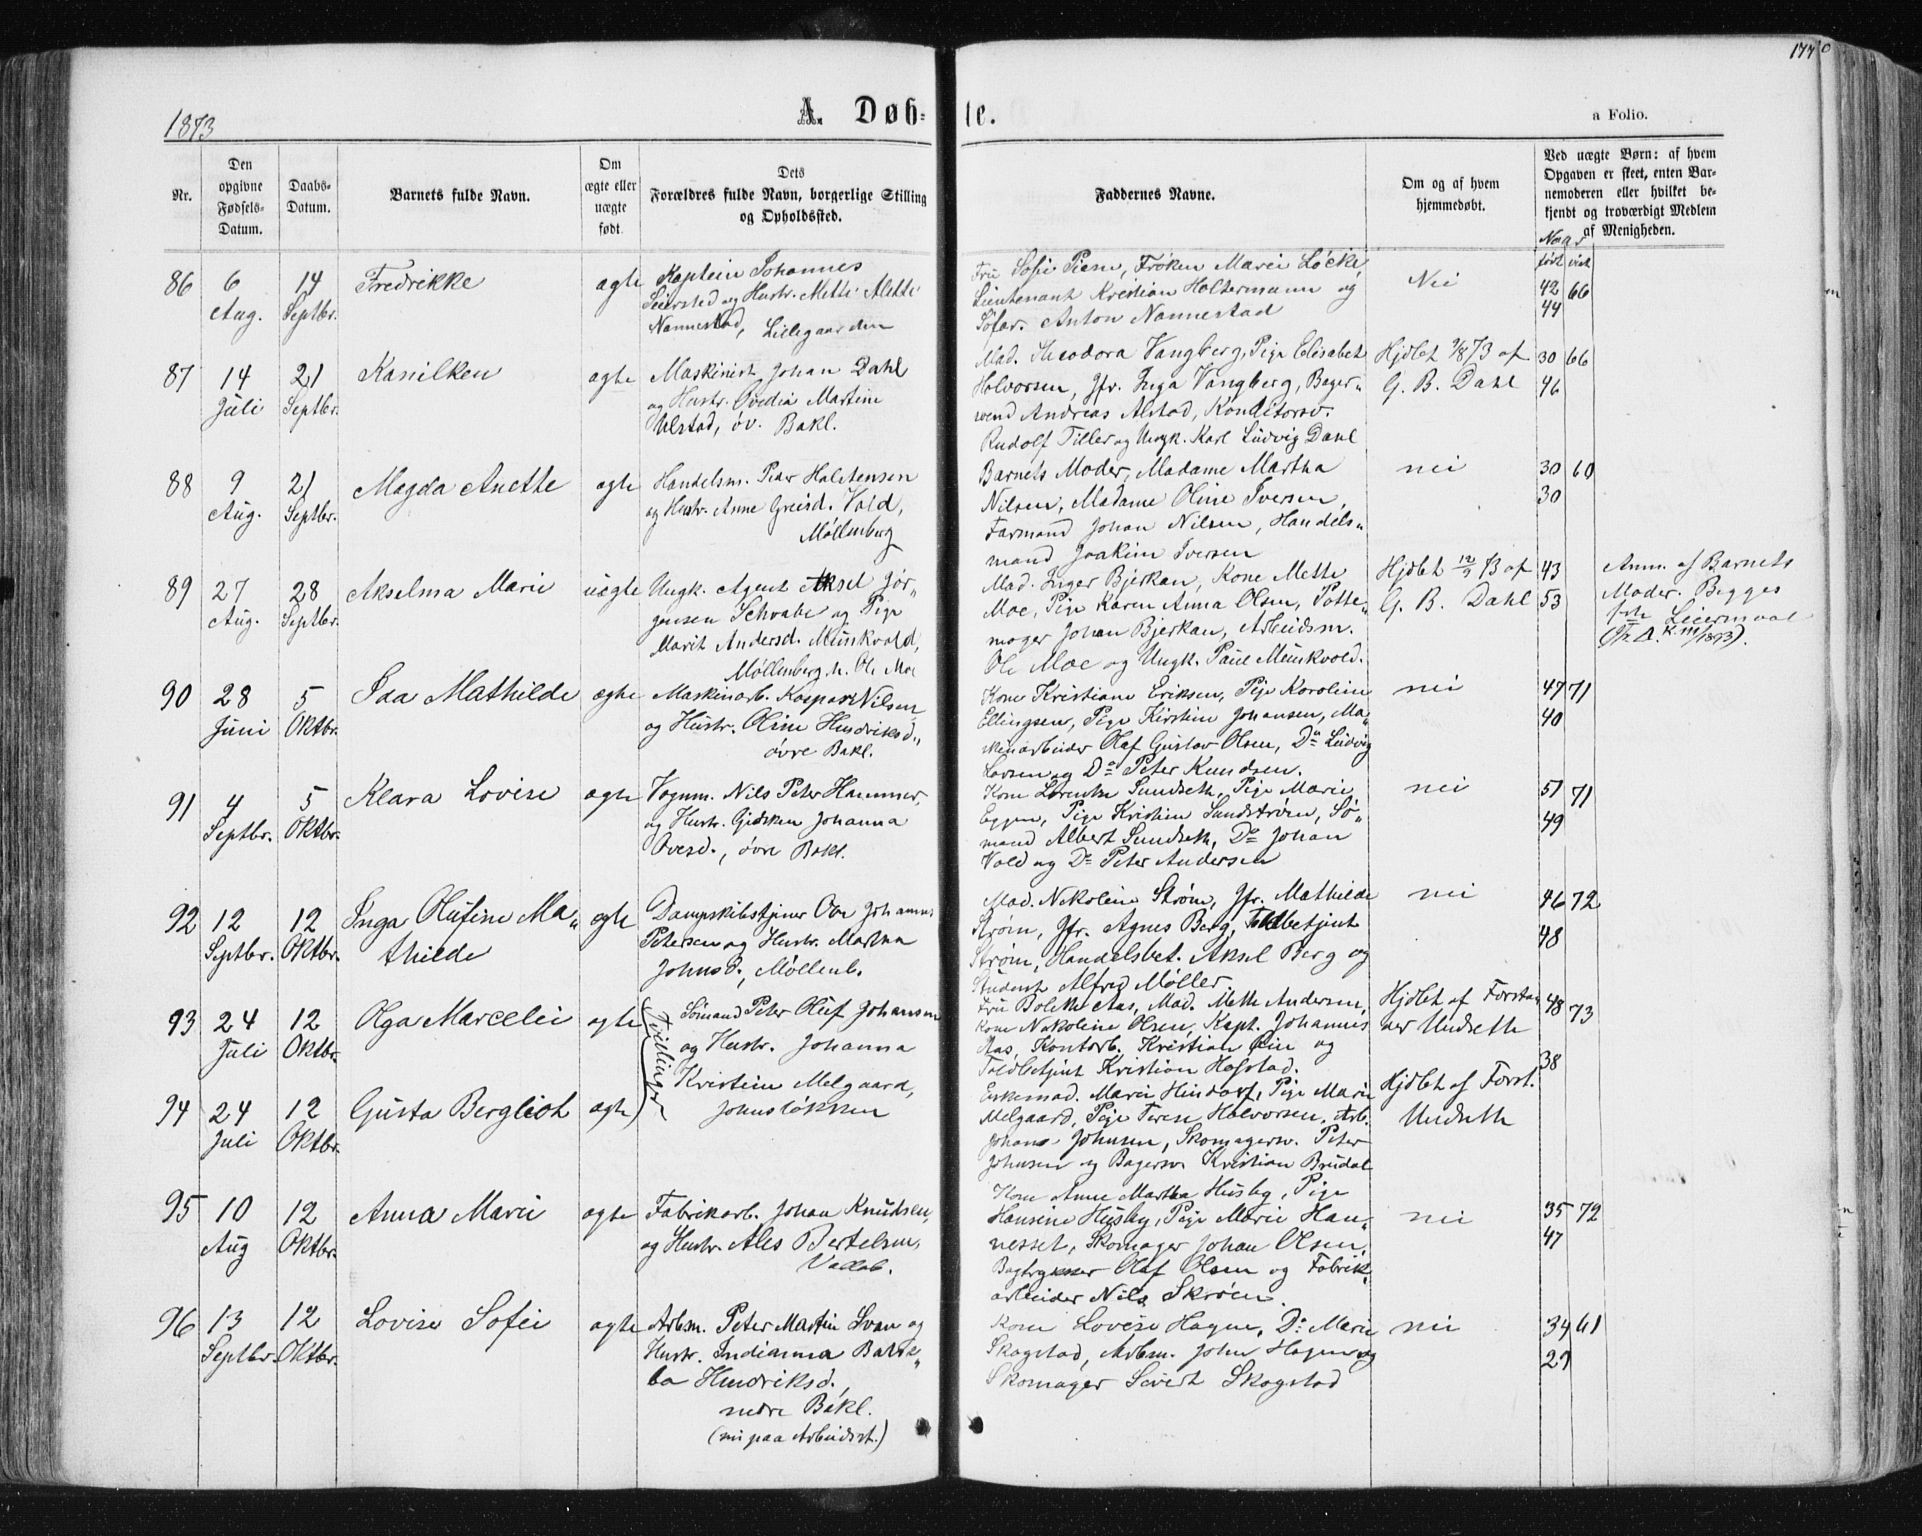 1873
A. Døb-
te.
a Folio.
177
Nr.
Den
opgivne
Fødsels-
Datum.
Daabs-
Datum.
Barnets fulde Navn.
Om
ægte eller
uægte
født.
Dets
Forældres fulde Navn, borgerlige Stilling
og Opholdssted.
Faddernes Navne.
Om og af hvem
hjemmedøbt.
Ved uægte Børn: af hvem
Opgaven er skeet, enten Bar-
nemoderen eller hvilket be-
kjendt og troværdigt Medlem
af Menigheden.
født viet
86 6 Aug. 14 Septbr. Fredrikke ægte
Kaptein Johannes
Seiersted og Hustr. Mette Alette
Nannestad, Lillegaarden
Fru Sofie Piene, Frøken Marie Löcke,
Lieutenant Kristian Holtermann og
Søfar. Anton Nannestad
Nei
42 66
44
87 14 Juli 21 Septbr. Kanilken ægte
Maskinist Johan Dahl
og Hustr. Ovedia Martine
Ulstad, öv. Bakl.
Mad. Theodora Vangberg, Pige Elisabet
Halvorsen, Jfr. Inga Vangberg, Bager-
svend Andreas Alstad, Konditorsv.
Rudolf Tiller og Ungk. Karl Ludvig Dahl
Hjdbt /8 73 af
G. B. Dahl
30 66
46
88 9 Aug. 21 Septbr. Magda Anette ægte
Handelsm. Peter Halstensen
og Hustr. Anne Greisd. Vold,
Møllenberg
Barnets Moder, Madame Martha
Nilsen, Madame Oline Iversen,
Farmand Johan Nilsen, Handels-
mand Joakim Iversen
nei
30 60
30
89 27 Aug. 28 Septbr. Akselma Marie uægte
Ungk. Agent Aksel Jør-
gensen Schvabe og Pige
Marit Andersd. Munkvold,
Møllenberg h. Ole Moe
Mad. Inger Bjerkan, Kone Mette
Moe, Pige Karen Anna Olsen, Potte-
mager Johan Bjerkan, Arbeidsm.
Ole Moe og Ungk. Paul Munkvold.
Hjdbt 12/9 73 af
G. B. Dahl
43
53
Anm. af Barnets
Moder. Begges
Leiermaal
90 28 Juni 5 Oktbr. Kaa Mathilde ægte
Maskinarb. Kaspar Nilsen
og Hustr. Oline Hendriksd.,
øvre Bakl.
Kone Kristiane Eriksen, Pige Karoline
Ellingsen, Pige Kirstine Johansen, Ma-
skinarbeider Olaf Gustav Olsen, Do Ludvig
Larsen og Do Peter Knudsen.
nei
47 71
40
91 4 Septbr. 5 Oktbr. Klara Lovise ægte
Vognm. Nils Peter Hammer
og Hustr. Gjesken Johanna
Ovesd., øvre Bakl.
Kone Lorentse Sundseth, Pige Marie
Eggen, Pige Kristine Sundstrøm, Sø-
mand Albert Sundseth, Do Johan
Vold og Do Peter Andersen
nei
51 71
49
92 12 Septbr. 12 Oktbr. Inga Olufine Ma-
thilde ægte
Dampskibstjener Ove Johannes
Petersen og Hustr. Martha
Johnsd., Møllenb.
Mad. Nikoline Strøm, Jfr. Mathilde
Strøm, Jfr. Agnes Berg, Toldbetjent
Strøm, Handelsbet. Aksel Berg og
Student Alfred Møller.
nei
46 72
48
93 24 Juli 12 Oktbr. Olga Marcelie ægte
Tvillinger
Sømand Peter Oluf Johansen
og Hustr. Johanna
Kristine Melgaard,
Johnsløkken
Fru Bolette Aas, Mad. Mette Andersen,
Kone Nikoline Olsen, Kapt. Johannes
Aas, Kontorb. Kristian Lie og
Toldbetjent Kristian Hofstad.
Hjdbt af Forsta-
ner Undseth
48 73
38
94 24 Juli 12 Oktbr. Gusta Bergliot ægte
Enkemad. Marie Hindorf, Pige Marie
Melgaard, Pige Terese Halvorsen, Arb.
Johans Johnsen, Skomagersv. Peter
Johnsen og Bagersv. Kristian Brudal
Hjdbt af Forst.
Undseth
95 10 Aug 12 Oktbr. Anna Marie ægte
Fabrikarb. Johan Knudsen,
og Hustr. Ales Bertelsen,
Vollab.
Kone Anne Martha Husby, Pige
Hansine Husby, Pige Marie Han-
nesset, Skomager Johan Olsen,
Bogtrykker Olaf Olsen og Fabrik-
arbeider Nils Skrøen.
nei
35 72
47
96 13 Septbr. 12 Oktbr. Lovise Sofie ægte
Arbm. Peter Martin Svan og
Hustr. Indianna
Hendriksd.,
nedre Bakl.
(nu paa Arbeidsst.)
Kone Lovise Hagen, Do Marie
Skogstad, Arbm. John Hagen og
Skomager Sivert Skogstad
nei
34 61
29